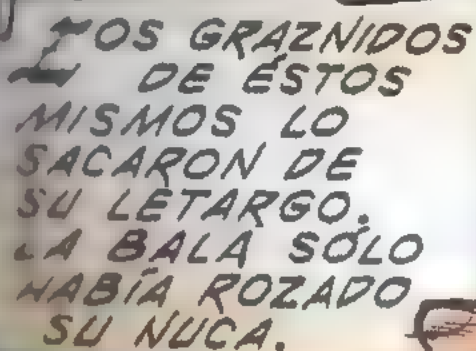 LOS GRAZNIDOS
DE ÉSTOS
MISMOS LO
SACARON DE
SU LETARGO.
LA BALA SÓLO
HABÍA ROZADO
SU NUCA.